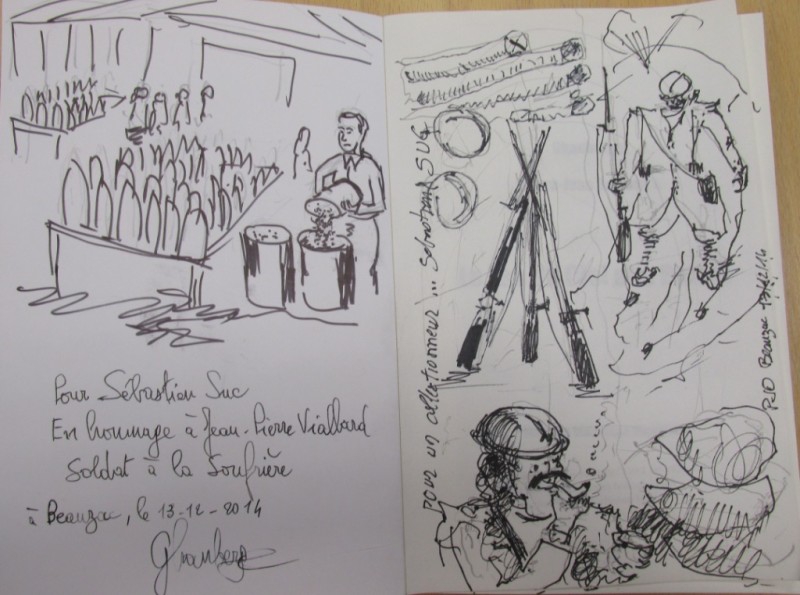 Pour Sébastien Suc
En hommage à Jean-Pierre Vialbard
Soldat à la Soufrière
à Beauzac, le 13-12-2014
pour un collectionneur ... Sébastien SUC
PJD Beauzac 13/12/14